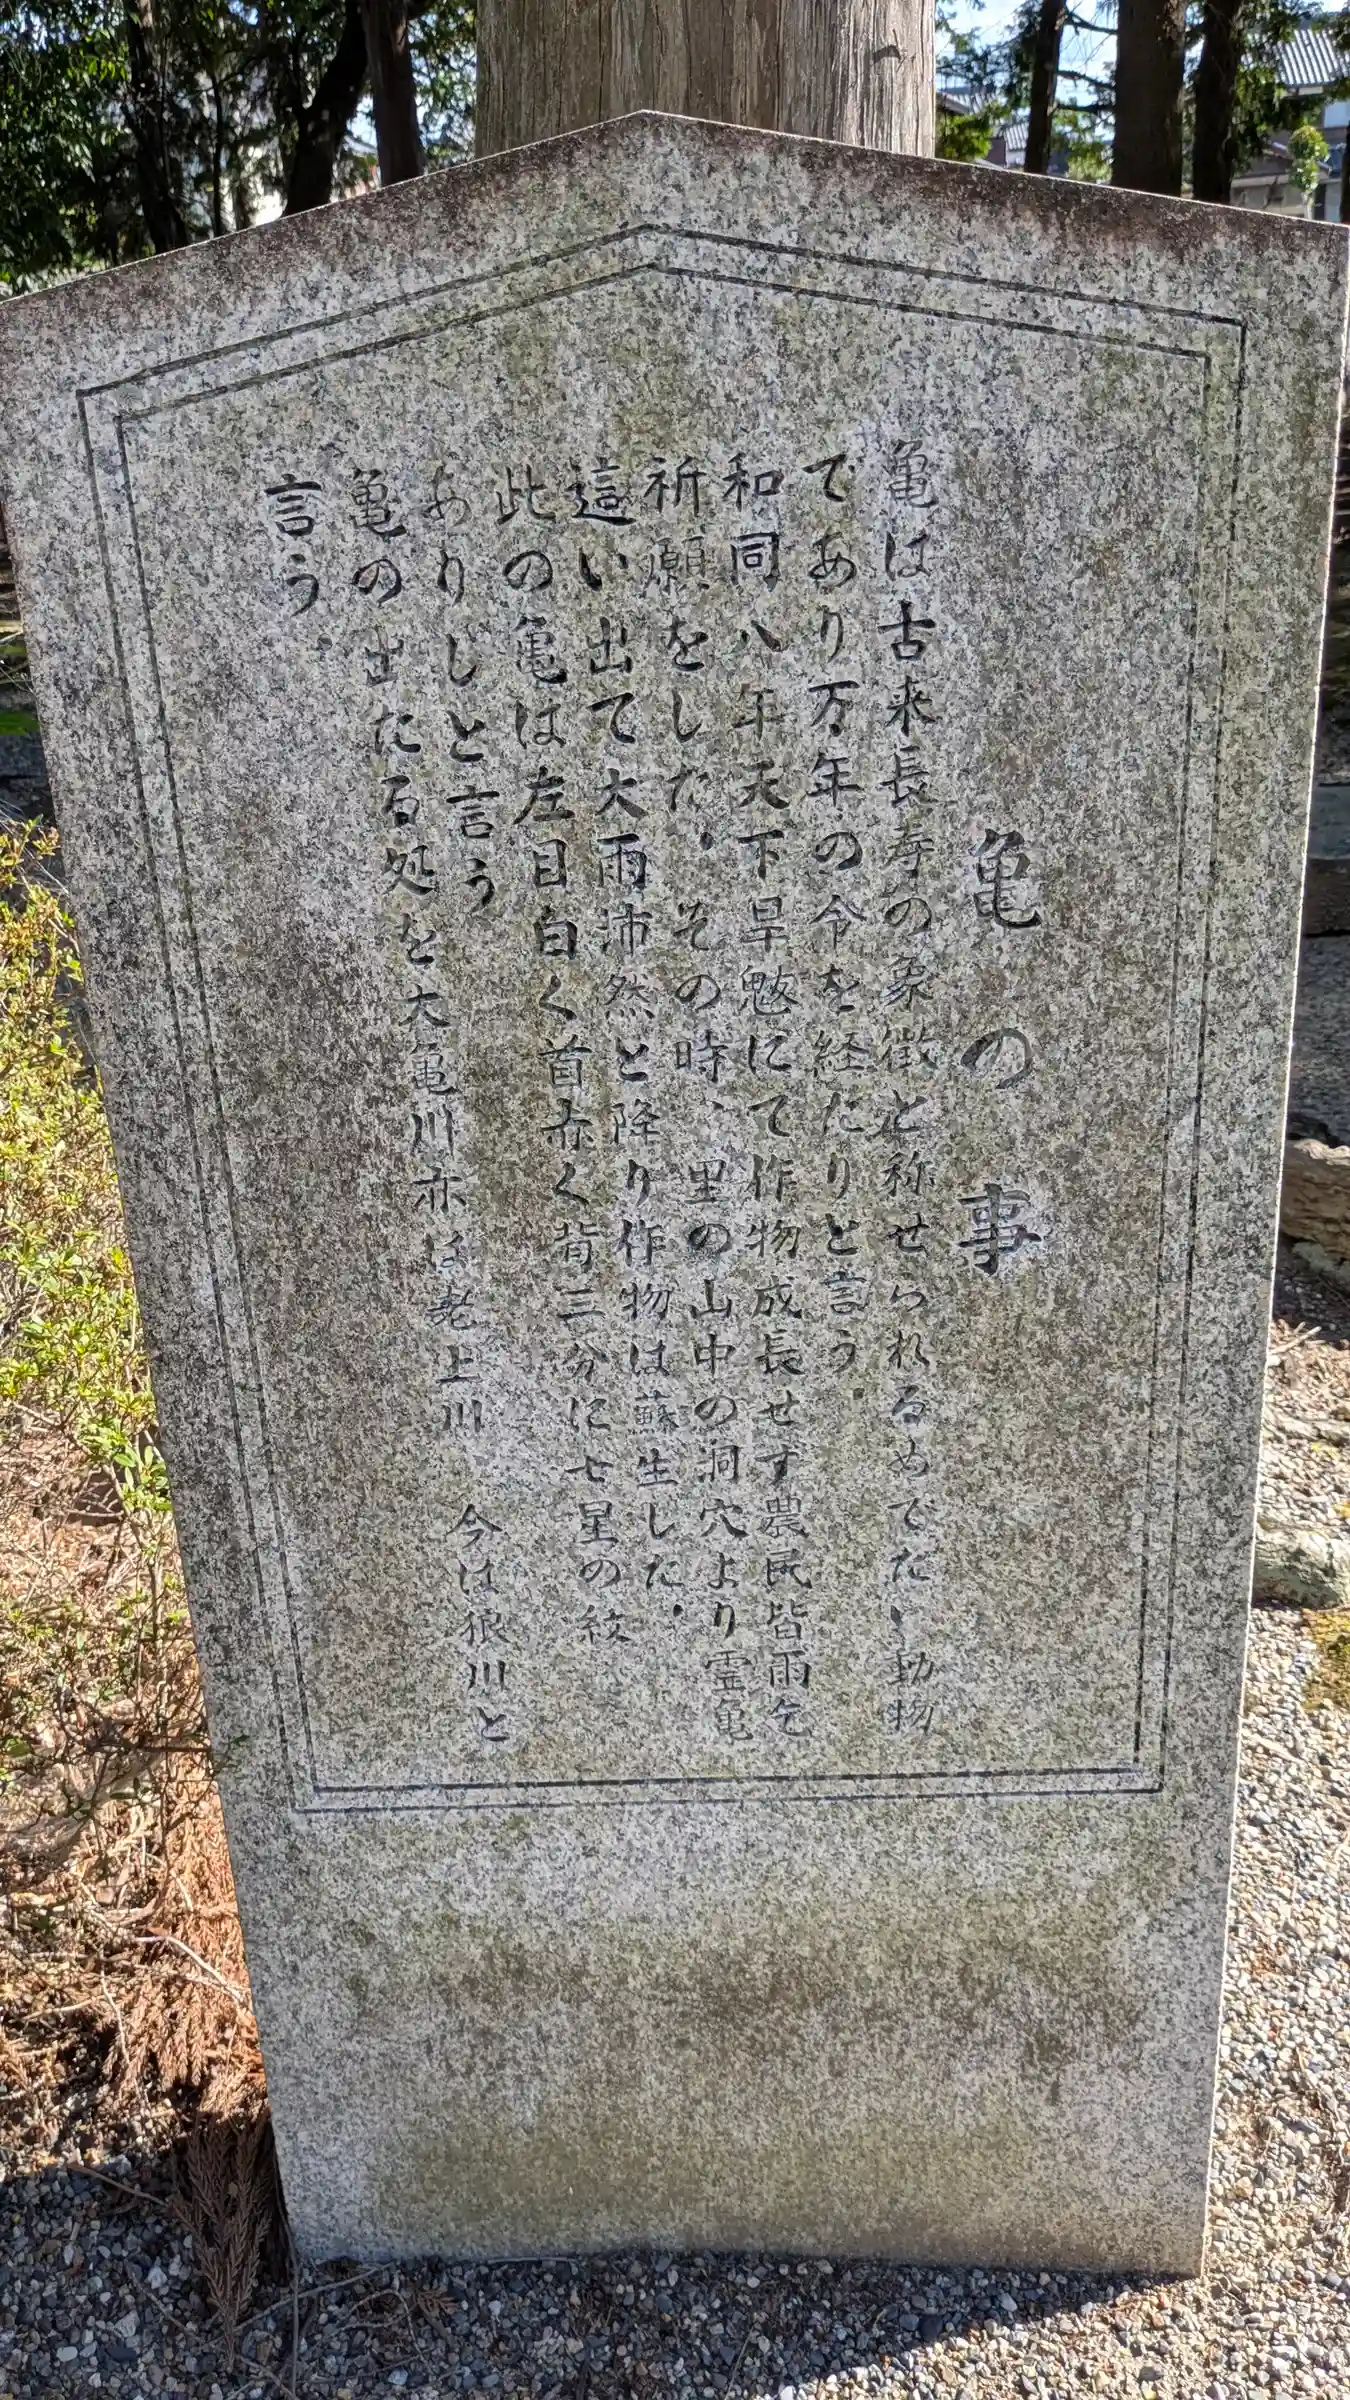 亀の事
亀は古来長寿の象徴と称せられるめでたい動物
であり万年の令を経たりと言う。
和同八年天下旱魃にて作物成長せず農民皆雨乞
祈願をした、その時、里の山中の洞穴より霊亀
這い出て大雨沛然と降り作物は蘇生した、
此の亀は左目白く首赤く背三分に七星の紋
ありしと言う
亀の出たる処を大亀川亦は老上川 今は狼川と
言う。